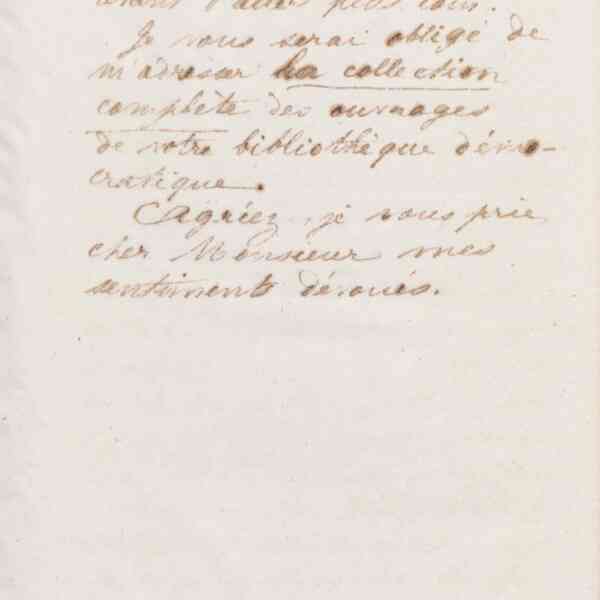 avant d'aller plus loin.
Je vous serai obligé de
m'adresser la collection
complète des ouvrages
de votre bibliothèque démo-
cratique.
Agréez, je vous prie
cher Monsieur mes
sentiments dévoués.